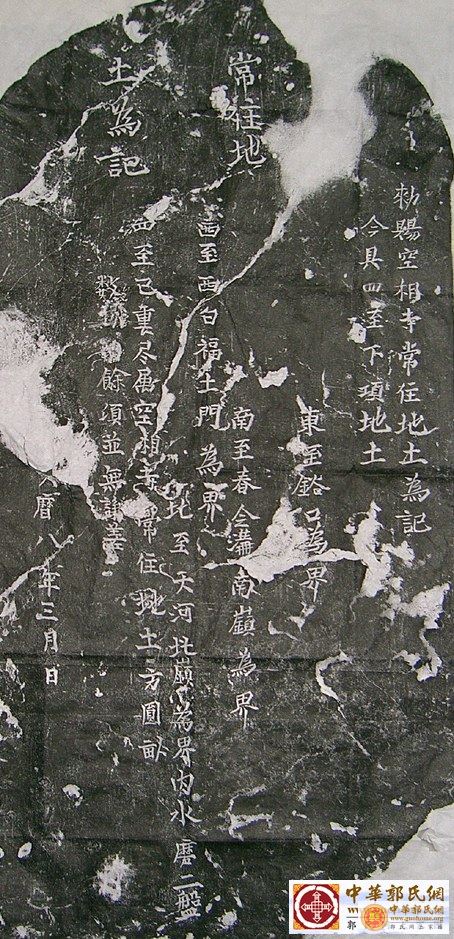 常住地
土為記
勑賜空相寺常住地土為記
今具四至下項地土
東至谽口為界
南至春仝溝南嶺為界
西至西白福土門為界
北至天河北嶺為界內水磨二盤
四至已裏尽屬空相寺常住地土方圓畝
數 餘須並無
曆八年三月日
中華郭氏網
中華郭氏網
www.guohome.org